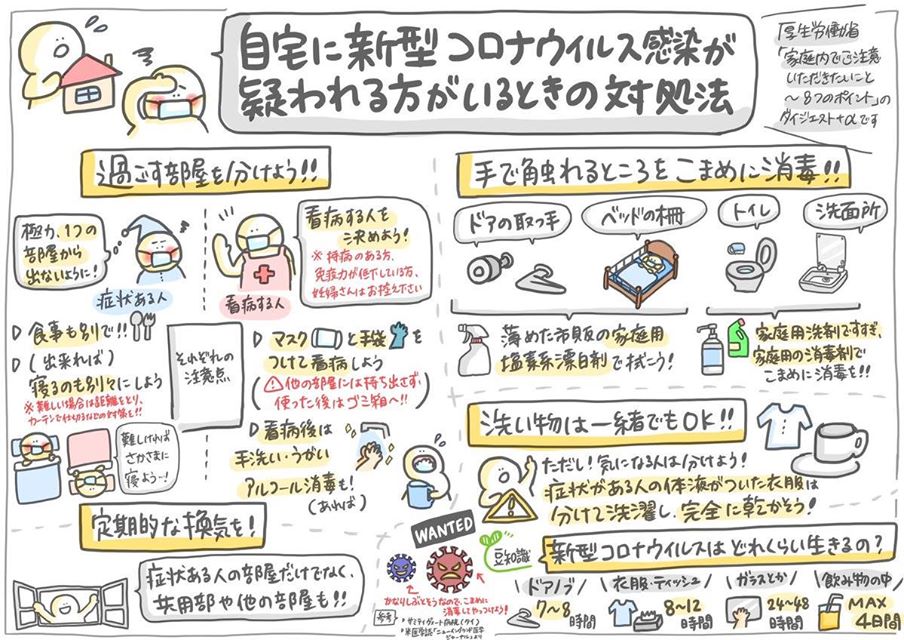 自宅に新型コロナウイルス感染が
疑われる方がいるときの対処法
厚生労働省
「家庭内でご注意
いただきたいこと
〜8つのポイント」の
ダイジェスト+αです
過ごす部屋を分けよう!!
極力、1つの
部屋から
出ないように!
症状ある人
看病する人を
決めよう!
※持病のある方、
免疫力が低下している方、
妊婦さんはお控え下さい
看病する人
▷食事も別で!!
▷(出来れば)
寝るのも別々にしよう
※難しい場合は距離をとり、
カーテンで仕切るなどの対策を!!
難しければ
さかさまに
寝よう〜!
それぞれの
注意点
▷マスクと手袋を
つけて看病しよう
(⚠他の部屋には持ち出さず、
使った後はゴミ箱へ!!)
▷看病後は
手洗い・うがい
アルコール消毒も!
(あれば)
定期的な換気も!
症状ある人の部屋だけでなく、
共用部や他の部屋も!!
手で触れるところをこまめに消毒!!
ドアの取っ手
ベッドの柵
トイレ
洗面所
薄めた市販の家庭用
塩素系漂白剤で拭こう!
家庭用洗剤ですすぎ、
家庭用の消毒剤で
こまめに消毒を!!
洗い物は一緒でもOK!!
ただし!気になる人は分けよう!
症状がある人の体液がついた衣服は
分けて洗濯し、完全に乾かそう!
WANTED
かなりしぶとそうなので、こまめに
消毒してやっつけよう!
参考
▷サミティヴェート病院(タイ)
▷米医学誌「ニューイングランド医学
ジャーナル」より
豆知識
新型コロナウイルスはどれくらい生きるの?
ドアノブ
7〜8
時間
衣服・ティッシュ
8〜12
時間
ガラスとか
24〜48
時間
飲み物の中
MAX
4日間